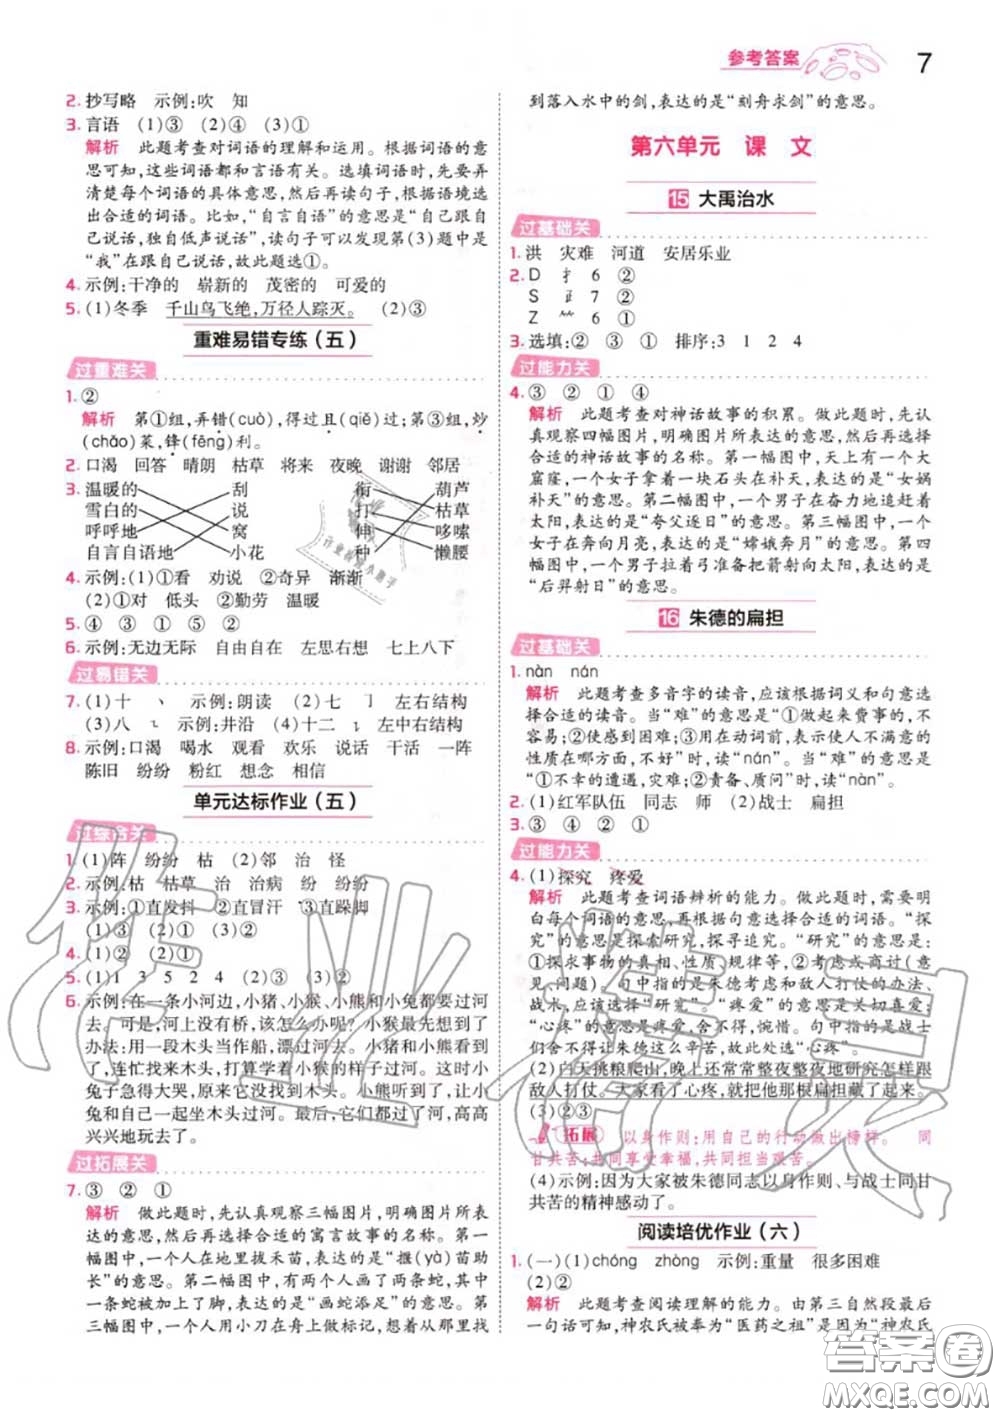 参考答案 7
2. 抄写略 示例:吹 知
3. 言语 (1)③ (2)④ (3)①
解析 此题考查对词语的理解和运用。根据词语的意
思可知,这些词语都和言语有关。选填词语时,先要弄
清楚每个词语的具体意思,然后再读句子,根据语境选
出合适的词语。比如,“自言自语”的意思是“自己跟自
己说话,独自低声说话”,读句子可以发现第(3)题中是
“我”在跟自己说话,故此题选①。
4. 示例:干净的 崭新的 茂密的 可爱的
5. (1)冬季 千山鸟飞绝,万径人踪灭。 (2)③
重难易错专练(五)
过重难关
1. ②
解析 第①组,弄错(cuò),得过且(qiě)过;第③组,炒
(chǎo)菜,锋(fēng)利。
2. 口渴 回答 晴朗 枯草 将来 夜晚 谢谢 邻居
3. 温暖的 刮 衔 葫芦
雪白的 说 打 枯草
呼呼地 窝 伸 哆嗦
自言自语地 小花 种 懒腰
4. 示例:(1)①看 劝说 ②奇异 渐渐
(2)①对 低头 ②勤劳 温暖
5. ④ ③ ① ⑤ ②
6. 示例:无边无际 自由自在 左思右想 七上八下
过易错关
7. (1)十 丶 示例:朗读 (2)七 ㇆ 左右结构
(3)八 ㇂ 示例:井沿 (4)十二 ㇂ 左中右结构
8. 示例:口渴 喝水 观看 欢乐 说话 干活 一阵
陈旧 纷纷 粉红 想念 相信
单元达标作业(五)
过综合关
1. (1)阵 纷纷 枯 (2)邻 治 怪
2. 示例:枯 枯草 治 治病 纷 纷纷
3. 示例:①直发抖 ②直冒汗 ③直跺脚
(1)③ (2)① (3)②
4. (1)② (2)①
5. (1)1 3 5 2 4 (2)③ (3)②
6. 示例:在一条小河边,小猪、小猴、小熊和小兔都要过河
去。可是,河上没有桥,该怎么办呢?小猴最先想到了
办法:用一段木头当作船,漂过河去。小猪和小熊看到
了,连忙找来木头,打算学着小猴的样子过河。这时,小
兔子急得大哭,原来它没找到木头。小熊听到了,让小
兔和自己一起坐着木头过河。最后,它们都过了河,高高
兴兴地玩去了。
过拓展关
7. ③ ② ①
解析 做此题时,先认真观察三幅图片,明确图片所
表达的意思,然后再选择合适的寓言故事的名称。第一
幅图片中,一个人在地里拔禾苗,表达的是“揠(yà)苗助
长”的意思。第二幅图片中,两个人画了两条蛇,其中
一条蛇被添上了脚,表达的是“画蛇添足”的意思。第
三幅图片中,一个人用小刀在舟上做标记,想要从那里找
到落入水中的剑,表达的是“刻舟求剑”的意思。
第六单元 课 文
15 大禹治水
过基础关
1. 洪 灾难 河道 安居乐业
2. D 扌 6 ②
S 辶 7 ②
Z 艹 6 ①
3. 选填:② ③ ① 排序:3 1 2 4
过能力关
4. ③ ② ① ④
解析 此题考查对神话故事的积累。做此题时,先认
真观察四幅图片,明确图片所表达的意思,然后再选择
合适的神话故事的名称。第一幅图中,天上有一个大
窟窿,一个女子拿着一块石头在补天,表达的是“女娲
补天”的意思。第二幅图中,一个男子在奋力地追赶着
太阳,表达的是“夸父逐日”的意思。第三幅图中,一个
女子在奔向月亮,表达的是“嫦娥奔月”的意思。第四
幅图中,一个男子拉着弓准备把箭射向太阳,表达的是
“后羿射日”的意思。
16 朱德的扁担
过基础关
1. nàn nán
解析 此题考查多音字的读音,应该根据词义和句意选
择合适的读音。当“难”的意思是“①做起来费事的,不
容易;②使感到困难;③用在动词前,表示使人不满意的
性质在哪方面,不好”时,读“nán”。当“难”的意思是
“①不幸的遭遇,灾难;②责备、质问”时,读“nàn”。
2. (1)红军队伍 同志 师 (2)战士 扁担
3. ③ ④ ② ①
过能力关
4. (1)探究 疼爱
解析 此题考查词语辨析的能力。做此题时,需要明
白每个词语的意思,再根据句意选择合适的词语。“探
究”的意思是探索研究,探寻追究。“研究”的意思是:
①探求事物的真相、性质、规律等,②考虑或商讨(意
见、问题)。句中指的是朱德考虑和敌人打仗的办法、
战术,应该选择“研究”。“疼爱”的意思是关切喜爱;
“心疼”的意思是①疼爱,②舍不得,惋惜。句中指的是战士
们舍不得朱德这么辛苦,故选择“心疼”。
(2)白天挑粮爬山,晚上还常常整夜整夜地研究怎样跟
敌人打仗。大家看了心疼,就把他那根扁担藏了起来。
(3)②③
拓展 以身作则:用自己的行动做出榜样。 同
甘共苦:共同享受幸福,共同担当艰苦。
(4)示例:因为大家被朱德同志以身作则、与战士同甘
共苦的精神感动了。
阅读培优作业(六)
1. (一)(1)chóng zhòng 示例:重量 很多困难
(2)②
解析 此题考查阅读理解的能力。由第三自然段最后
一句话可知,神农氏被奉为“医药之祖”是因为“神农氏
作业精灵
答案圈
MXQE.COM